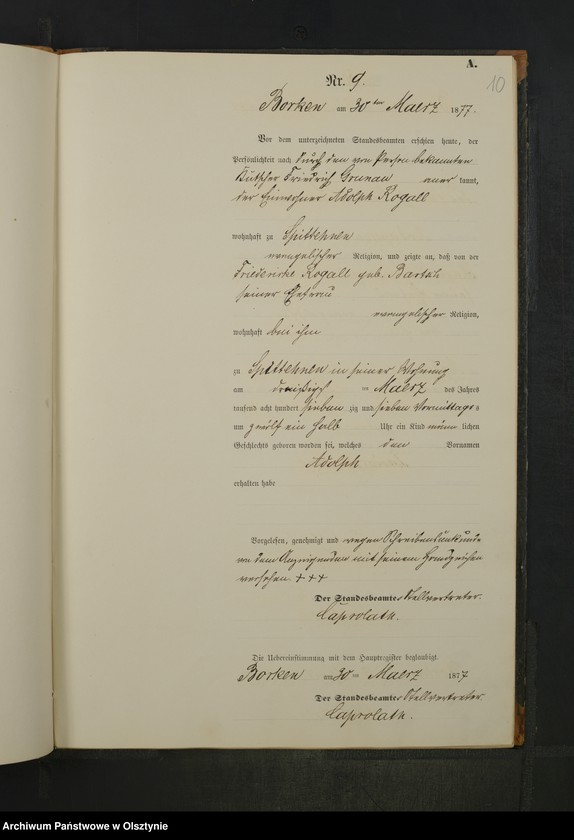 A.
10
Nr. 9.
Borken am 30ten Maerz 1877.
Vor dem unterzeichneten Standesbeamten erschien heute, der
Persönlichkeit nach durch den von Person bekannten
Kutscher Friedrich Grunau aner kannt,
der Einwohner Adolph Rogall
wohnhaft zu Spittehnen
evangelischer Religion, und zeigte an, daß von der
Friedericke Rogall geb. Bartsch
seiner Ehefrau
evangelischer Religion,
wohnhaft bei ihm
zu Spittehnen in seiner Wohnung
am dreißigst ten Maerz des Jahres
tausend acht hundert sieben zig und sieben Vormittags
um zwölf ein halb Uhr ein Kind männ lichen
Geschlechts geboren worden sei, welches den Vornamen
Adolph
erhalten habe
Vorgelesen, genehmigt und wegen Schreibensunkunde
von dem Anzeigenden mit seinem Handzeichen
versehen +++
Der Standesbeamte Stellvertreter.
Caprolath.
Die Uebereinstimmung mit dem Hauptregister beglaubigt.
Borken am 30ten Maerz 1877
Der Standesbeamte Stellvertreter.
Caprolath.
Archiwum Państwowe w Olsztynie